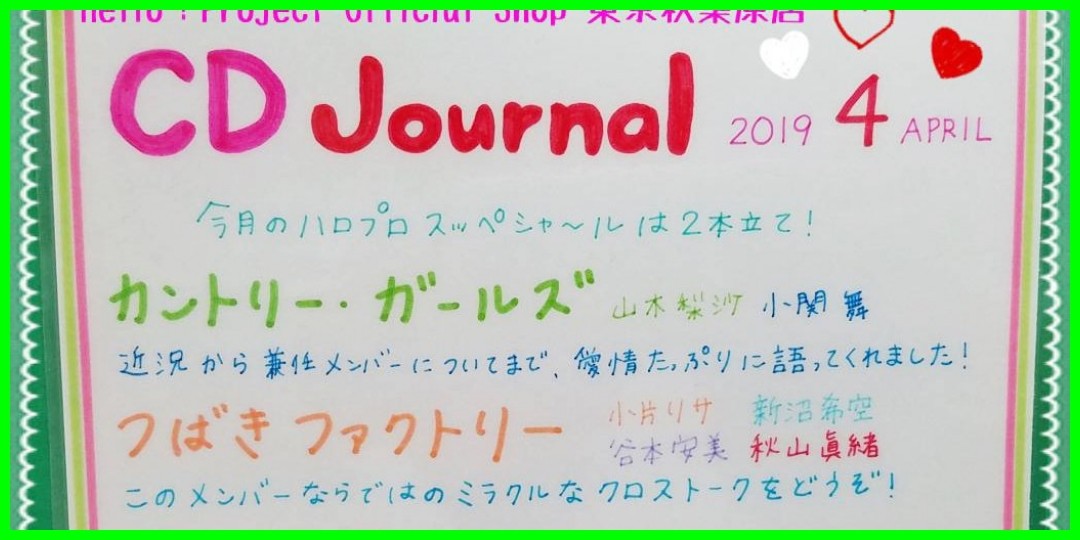 Hello！Project Official Shop 東京秋葉原店
CD Journal 2019 4 APRIL
今月のハロプロスッペシャ〜ルは2本立て！
カントリー・ガールズ 山木梨沙 小関舞
近況から兼任メンバーについてまで、愛情たっぷりに語ってくれました！
つばきファクトリー 小片リサ 新沼希空
谷本安美 秋山眞緒
このメンバーならではのミラクルなクロストークをどうぞ！